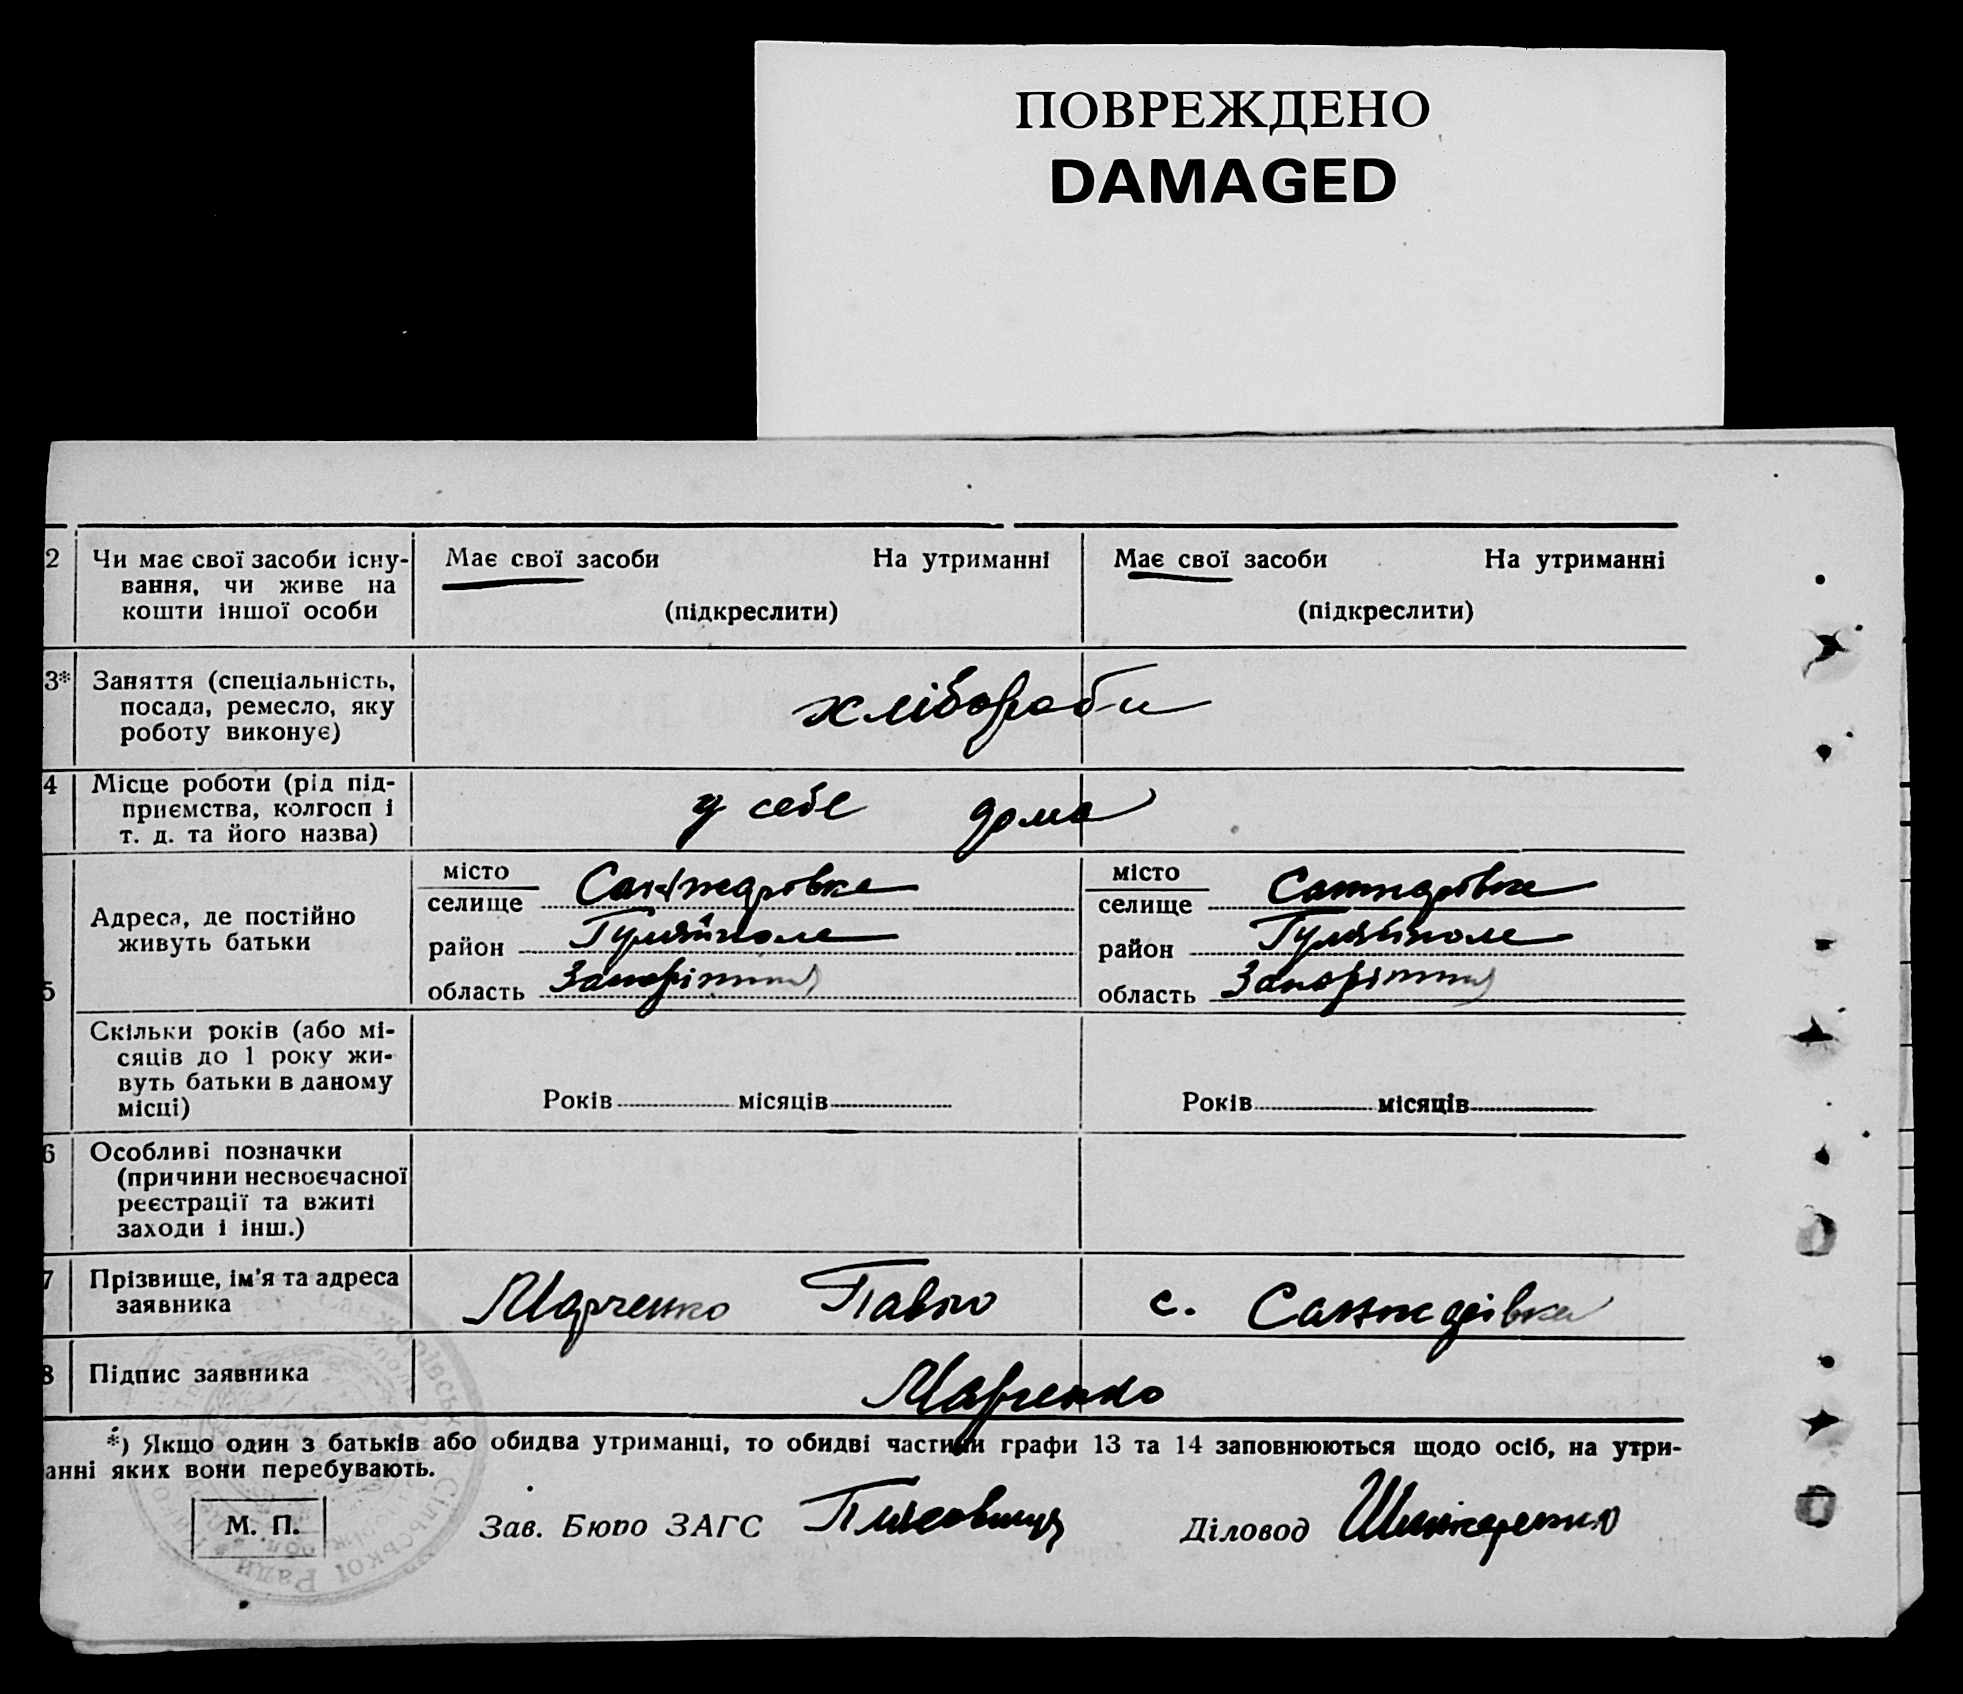 ПОВРЕЖДЕНО
DAMAGED
2 Чи має свої засоби існу-
вання, чи живе на
кошти іншої особи
Має свої засоби На утриманні
(підкреслити)
Має свої засоби На утриманні
(підкреслити)
3* Заняття (спеціальність,
посада, ремесло, яку
роботу виконує)
хлібороби
4 Місце роботи (рід під-
приємства, колгосп і
т. д. та його назва)
у себе дома
5 Адреса, де постійно
живуть батьки
місто
селище Санжаровка
район Гуляйполе
область Запоріжжя
місто
селище Санжарівка
район Гуляйполе
область Запоріжжя
Скільки років (або мі-
сяців до 1 року жи-
вуть батьки в даному
місці)
Років місяців
Років місяців
6 Особливі позначки
(причини несвоєчасної
реєстрації та вжиті
заходи і інш.)
7 Прізвище, ім'я та адреса
заявника
Марченко Павло с. Санжарівка
8 Підпис заявника
Марченко
*) Якщо один з батьків або обидва утриманці, то обидві частини графи 13 та 14 заповнюються щодо осіб, на утри-
анні яких вони перебувають.
М. П.
Зав. Бюро ЗАГС
Діловод Шинкаренко
Сільської Ради